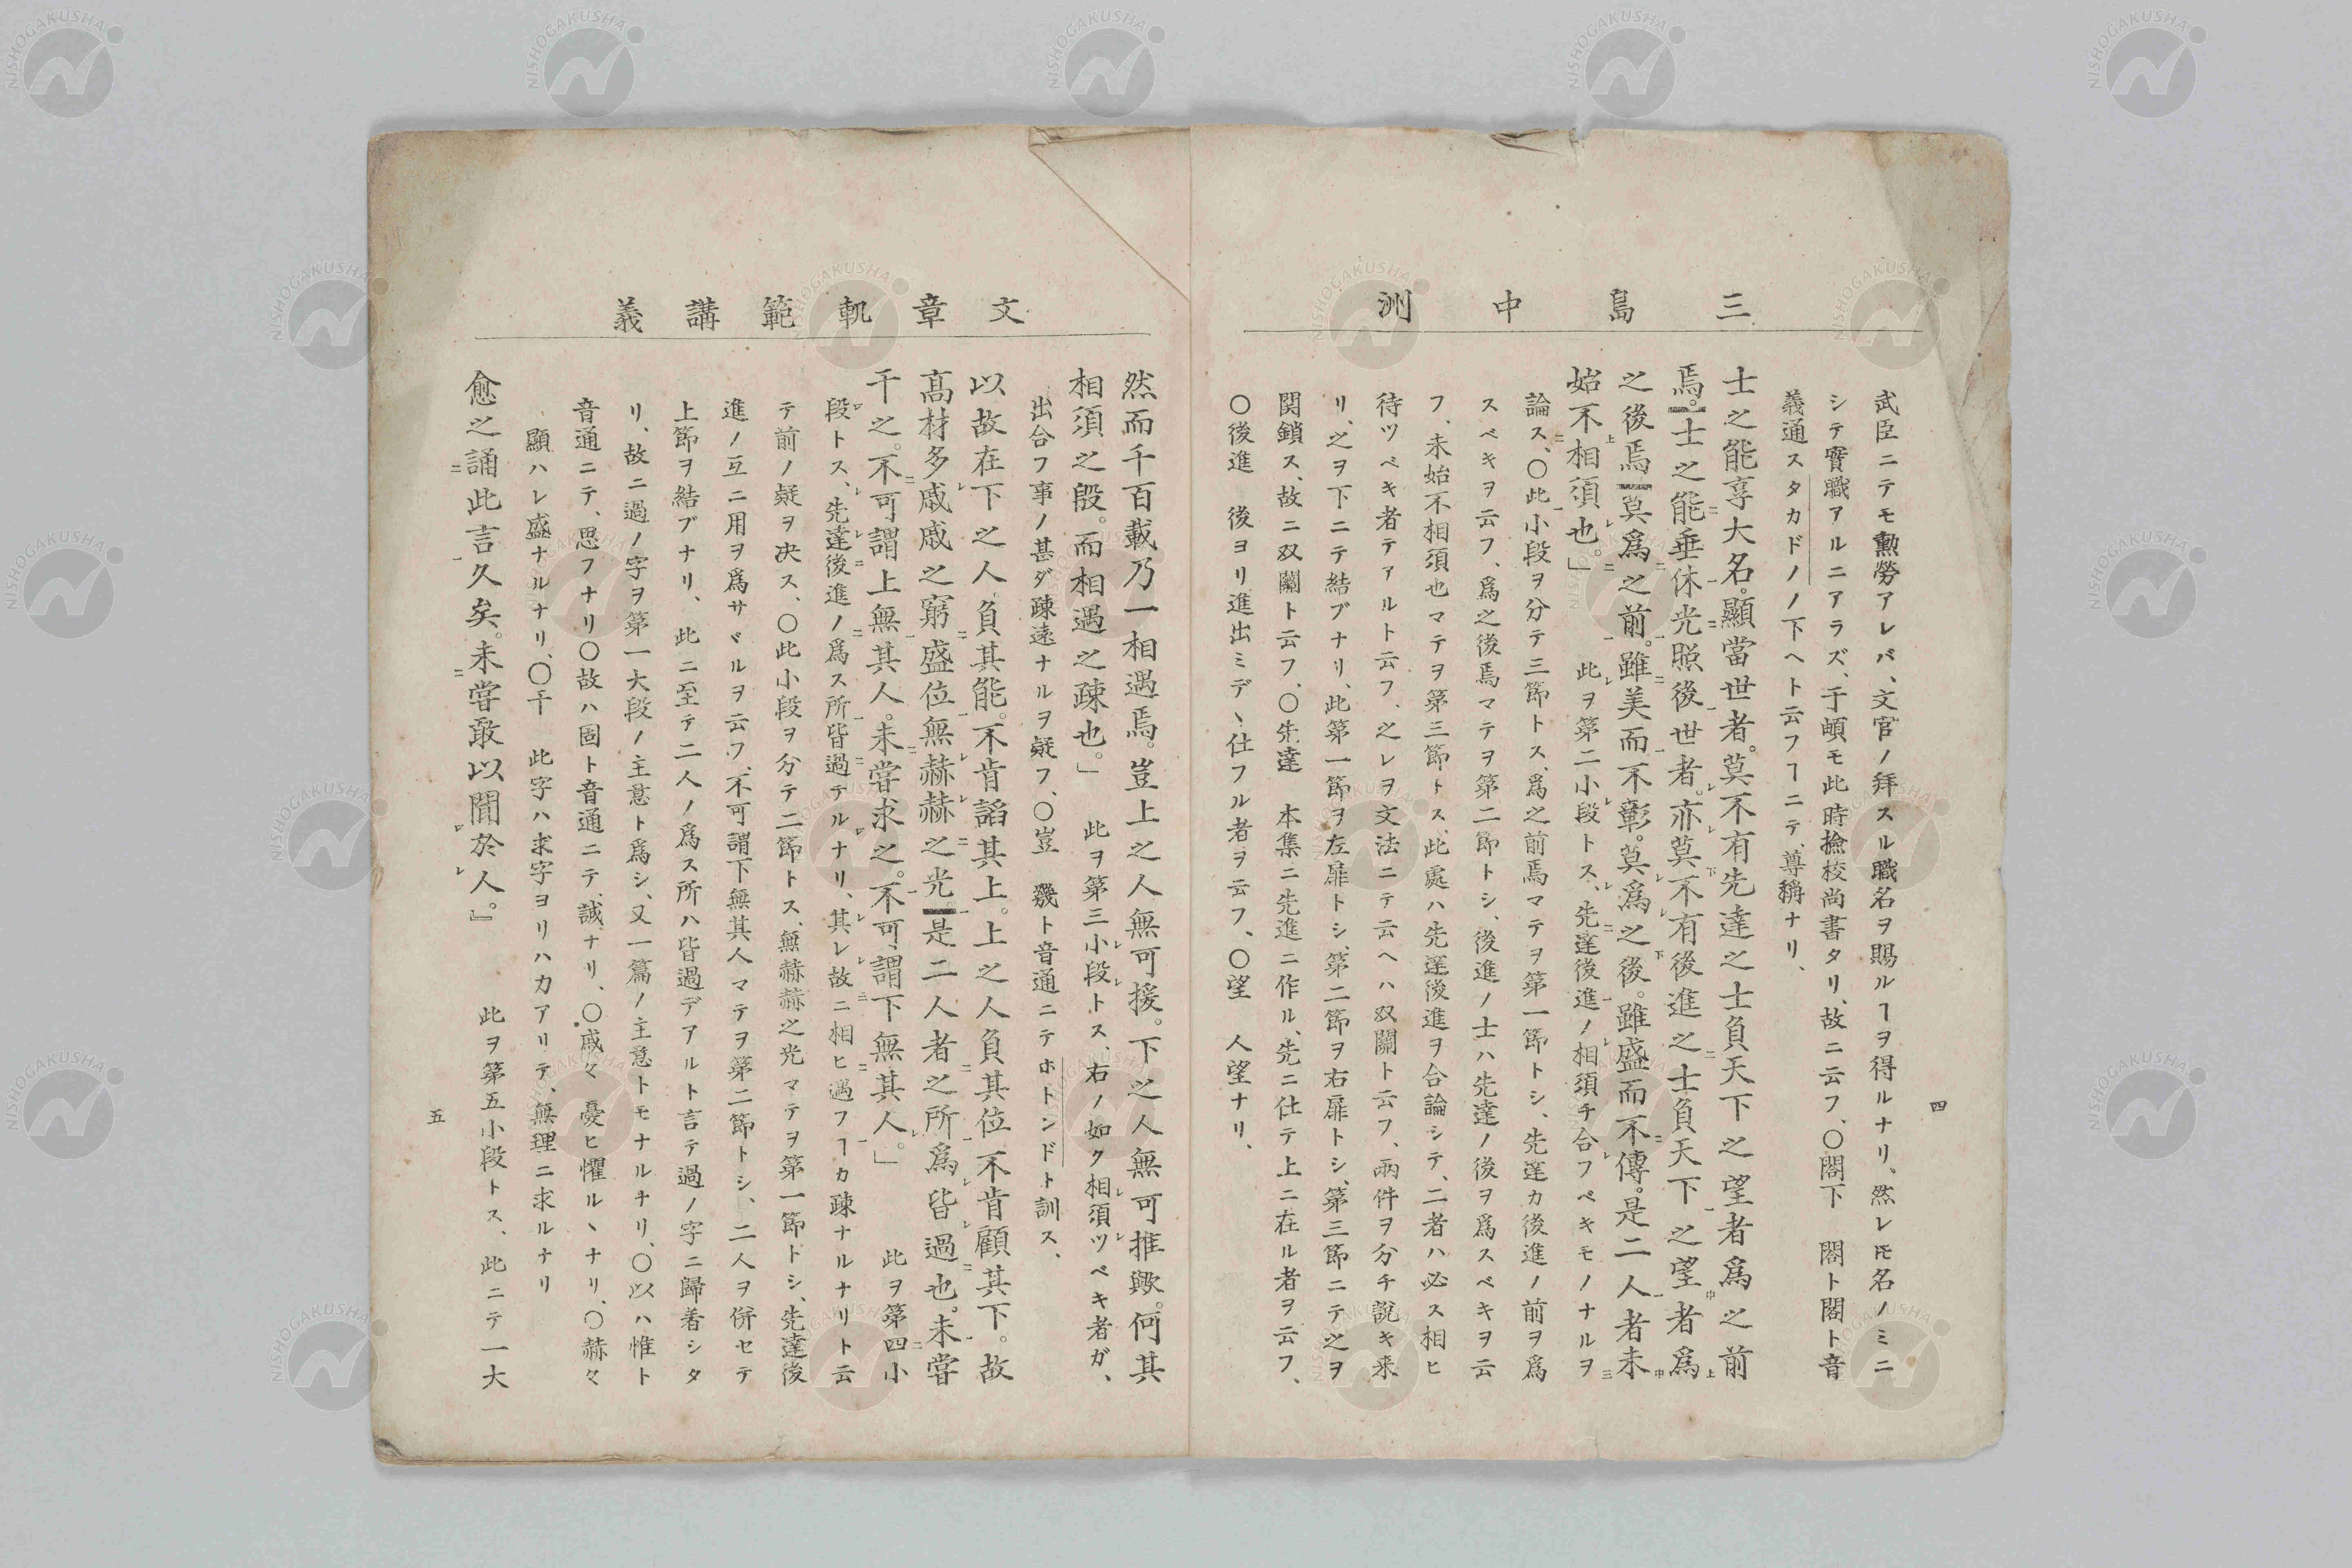 三島中洲
四
武臣ニテモ勲勞アレバ、文官ノ拜スル職名ヲ賜ルヿヲ得ルナリ、然レ𪜈名ノミニ
シテ實職アルニアラズ、于頔モ此時撿校尚書タリ、故ニ云フ、〇閤下　閤ト閣ト音
義通スタカドノノ下ヘト云フヿニテ、尊稱ナリ、
士之能享大名。顯當世者。莫不有先達之士負天下之望者爲之前
焉。士之能垂休光照後世者。亦莫不有後進之士負天下之望者爲
之後焉。莫爲之前。雖美而不彰。莫爲之後。雖盛而不傳。是二人者未
始不相須也。」　此ヲ第二小段トス、先達後進ノ相須チ合フベキモノナルヲ
論ス、〇此小段ヲ分テ三節トス、爲之前焉マテヲ第一節トシ、先達カ後進ノ前ヲ爲
スベキヲ云フ、爲之後焉マテヲ第二節トシ、後進ノ士ハ先達ノ後ヲ爲スベキヲ云
フ、未始不相須也マテヲ第三節トス、此處ハ先達後進ヲ合論シテ、二者ハ必ス相ヒ
待ツベキ者テアルト云フ、之レヲ文法ニテ云ヘハ双關ト云フ、兩件ヲ分チ說キ来
リ、之ヲ下ニテ結ブナリ、此第一節ヲ左扉トシ、第二節ヲ右扉トシ、第三節ニテ之ヲ
関鎖ス、故ニ双關ト云フ、〇先達　本集ニ先進ニ作ル、先ニ仕テ上ニ在ル者ヲ云フ、
〇後進　後ヨリ進出ミデヽ仕フル者ヲ云フ、〇望　人望ナリ、
文章軌範講義
然而千百載乃一相遇焉。豈上之人無可援。下之人無可推歟。何其
相須之殷。而相遇之疎也。」　此ヲ第三小段トス、右ノ如ク相須ツベキ者ガ、
出合フ事ノ甚ダ疎遠ナルヲ疑フ、〇豈　幾ト音通ニテホトンドト訓ス、
以故在下之人負其能。不肯諂其上。上之人負其位不肯顧其下。故
高材多戚戚之窮盛位無赫赫之光。是二人者之所爲皆過也。未嘗
干之。不可謂上無其人。未嘗求之。不可謂下無其人。」　此ヲ第四小
段トス、先達後進ノ爲ス所皆過テルナリ、其レ故ニ相ヒ遇フヿカ疎ナルナリト云
テ前ノ疑ヲ决ス、〇此小段ヲ分テ二節トス、無赫赫之光マテヲ第一節トシ、先達後
進ノ互ニ用ヲ爲サヾルヲ云フ、不可謂下無其人マテヲ第二節トシ、二人ヲ併セテ
上節ヲ結ブナリ、此ニ至テ二人ノ爲ス所ハ皆過デアルト言テ過ノ字ニ歸着シタ
リ、故ニ過ノ字ヲ第一大段ノ主意ト爲シ、又一篇ノ主意トモナルナリ、〇以ハ惟ト
音通ニテ、思フナリ〇故ハ固ト音通ニテ、誠ナリ、〇戚々　憂ヒ懼ルヽナリ、〇赫々
顯ハレ盛ナルナリ、〇干　此字ハ求字ヨリハカアリテ、無理ニ求ルナリ
愈之誦此言久矣。未嘗敢以聞於人。」　此ヲ第五小段トス、此ニテ一大
五